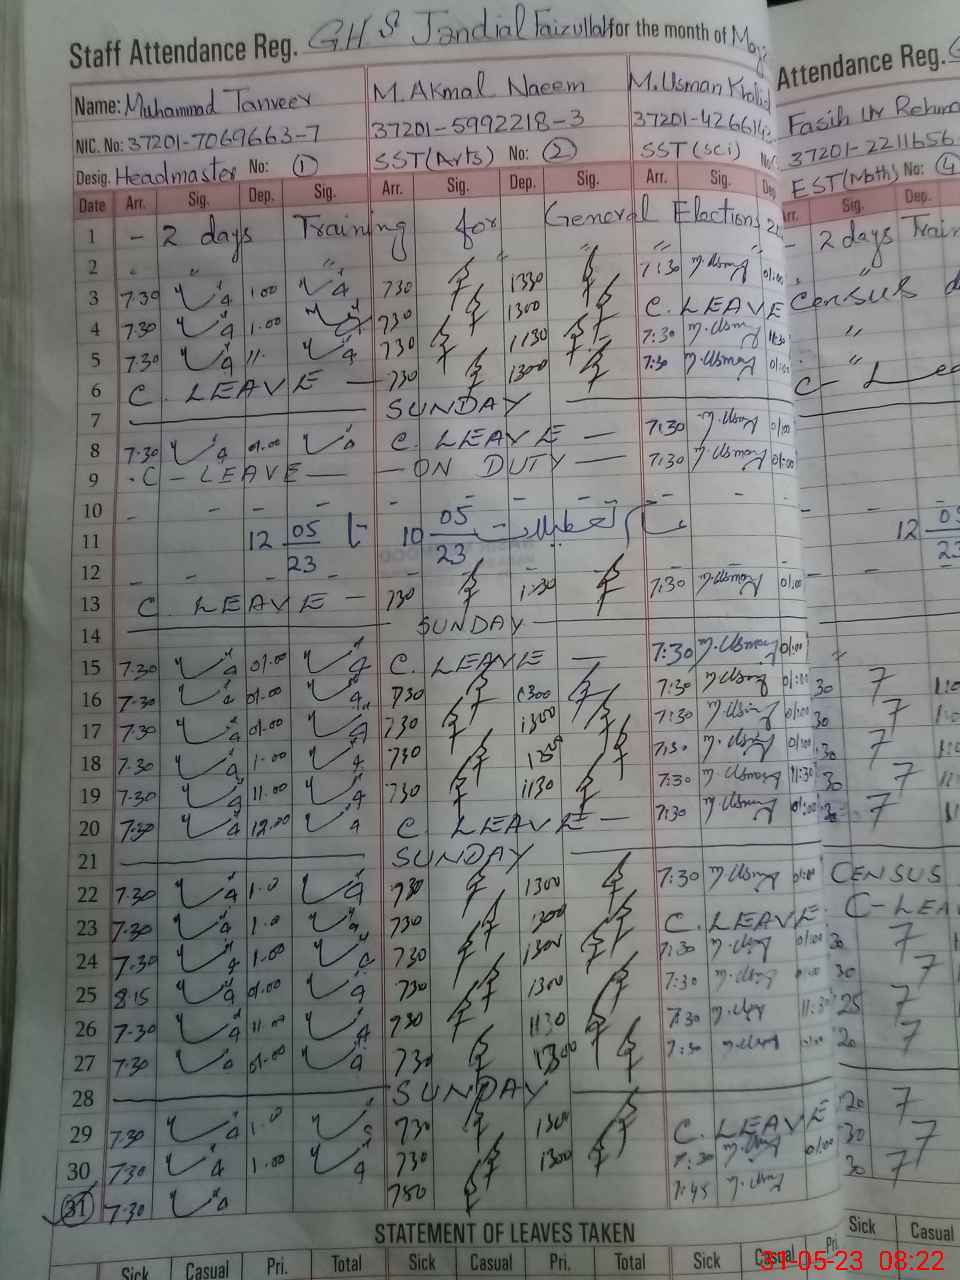 Staff Attendance Reg. G.H.S Jandial Faizullah for the month of May
Attendance Reg.
Name: Muhammad Tanveer M. Akmal Naeem M. Usman Khalid Fasih Ur Rehma
NIC. No: 37201-7069663-7 37201-5992218-3 37201-426614 37201-2211656-
Desig. Headmaster No: 1 SST(Arts) No: 2 SST(sci) EST(Math) No: 4
Date Arr. Sig. Dep. Sig. Arr. Sig. Dep. Sig. Arr. Sig. Dep Arr. Sig. Dep.
1 - 2 days Training for General Elections - 2 days Train
2 " " " " " 7:30 M.Usman 01:00 "
3 7.30 1.00 730 1330 C. LEAVE Census d
4 7.30 1.00 730 1300 7:30 M.Usman 11:30 "
5 7.30 11. 730 1130 7:30 M.Usman 01:00 "
6 C. LEAVE — 730 1300 C- Lea
7 SUNDAY
8 7.30 01.00 C. LEAVE — 7:30 M.Usman 01:00
9 C-LEAVE — ON DUTY — 7:30 M.Usman 01:00
10 - - - - - - - - -
11 12 05/23 تا 10 05/23 تعطیلات 12 05/23
12 - - - - - - - - -
13 C. LEAVE — 730 1:30 7:30 M.Usman 01:00
14 SUNDAY
15 7.30 01.00 C. LEAVE — 7:30 M.Usman 01:00 "
16 7.30 01.00 730 1300 7:30 M.Usman 01:00 30
17 7.30 01.00 730 1300 7:30 M.Usman 01:00 30
18 7.30 1.00 730 7:30 M.Usman 01:00 30
19 7.30 11.00 730 1130 7:30 M.Usman 11:30 30
20 7.30 12.00 C. LEAVE — 7:30 M.Usman 01:00
21 SUNDAY
22 7.30 1.0 730 1300 7:30 M.Usman 01:00 CENSUS
23 7.30 1.0 730 1300 C. LEAVE C-LEA
24 7.30 1.00 730 1300 7:30 01:00 30
25 8.15 01.00 730 1300 7:30 01:00 30
26 7.30 11.00 730 1130 7:30 11:30 25
27 7.30 01.00 730 1300 7:30 01:00 20
28 SUNDAY
29 7.30 1.0 730 1300 C. LEAVE 20
30 7.30 1.00 730 1300 7:30 01:00 30
31 7.30 730 7:45 30
STATEMENT OF LEAVES TAKEN
Sick Casual Pri. Total Sick Casual Pri. Total Sick Casual Pri Sick Casual
31-05-23 08:22